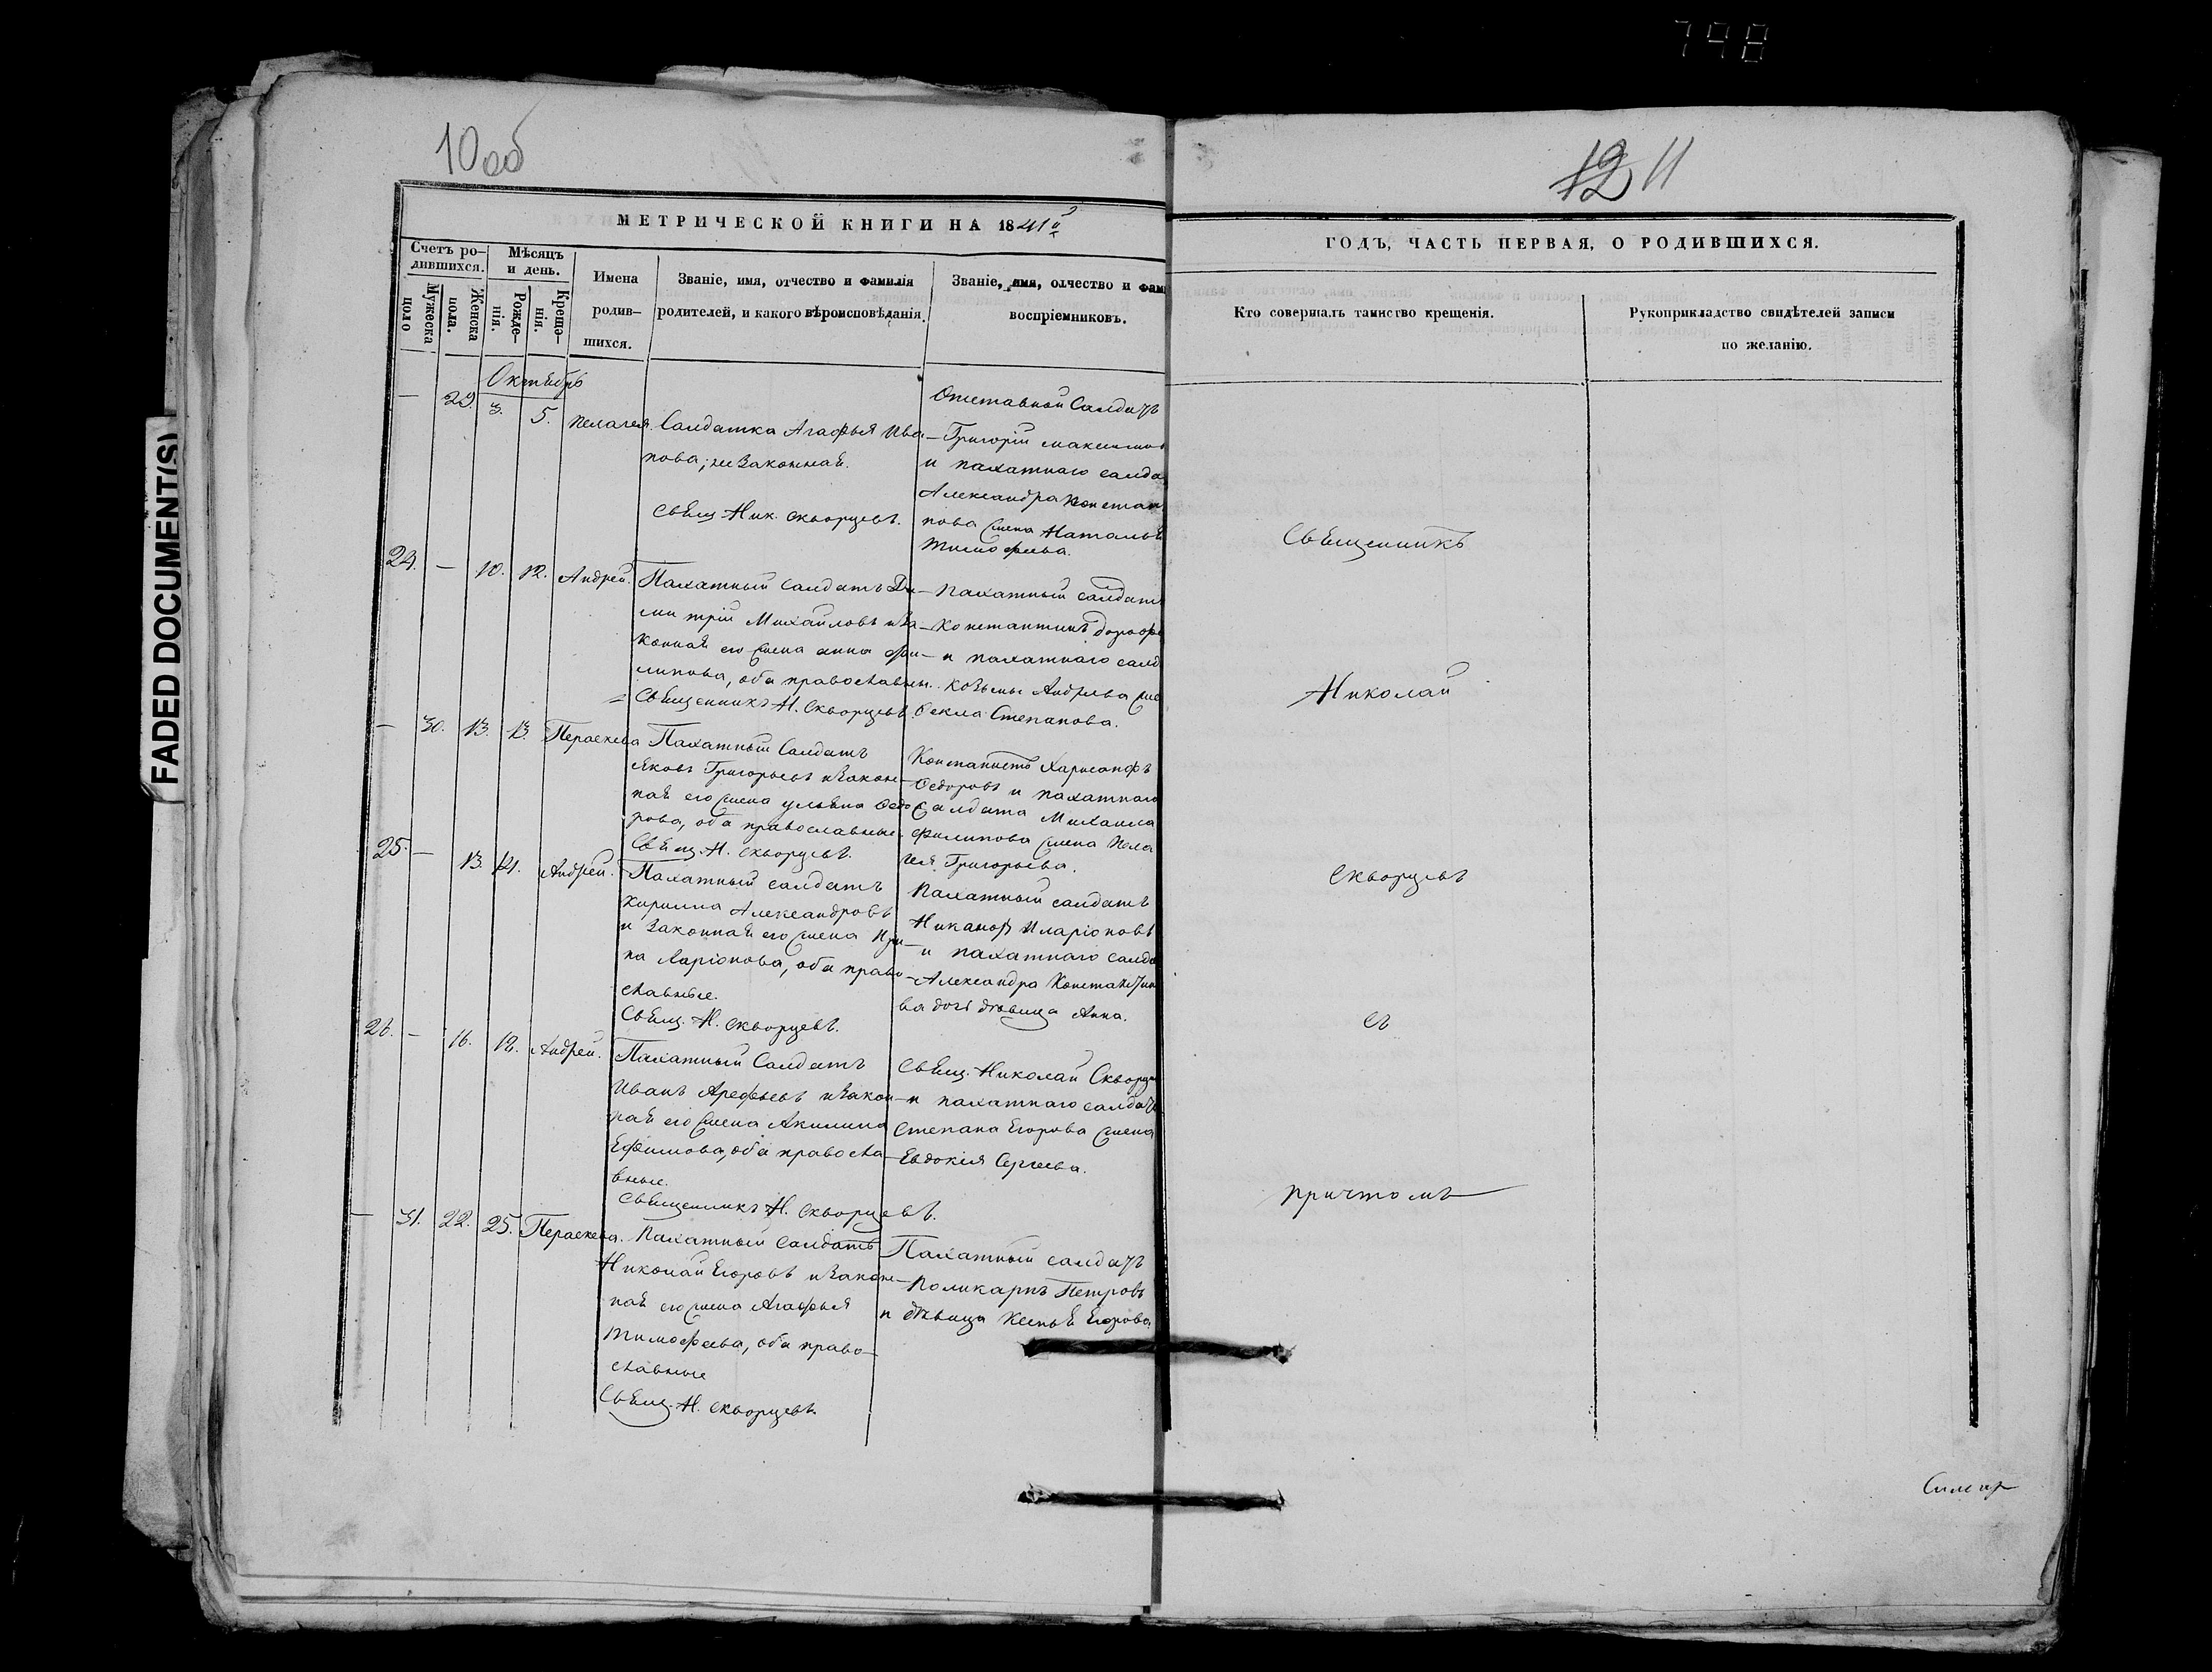 798
10 об
12 11
FADED DOCUMENT(S)
МЕТРИЧЕСКОЙ КНИГИ НА 1841й
ГОДЪ, ЧАСТЬ ПЕРВАЯ, О РОДИВШИХСЯ.
Счетъ ро-
дившихся.
Мужеска
пола
Женска
пола.
Мѣсяцъ
и день.
Рожде-
нія.
Креще-
нія.
Имена
родив-
шихся.
Званіе, имя, отчество и фамилія
родителей, и какого вѣроисповѣданія.
Званіе, имя, отчество и фам
воспріемниковъ.
Кто совершалъ таинство крещенія.
Рукоприкладство свидѣтелей записи
по желанію.
Октябрь
— 29. 3. 5. Пелагея.
Салдатка Агафья Ива-
нова; незаконная.
Свѣщ. Ник. Скворцевъ.
Отставной Салдатъ
Григорій Максимов
и пахатнаго салда
Александра Констан
нова жена Наталья
Тимофеева.
24. — 10. 12. Андрей.
Пахатный Салдатъ Ди-
митрій Михайловъ и за-
конная его жена Анна Фи-
липова, оба православны.
= Свѣщенникъ Н. Скворцевъ.
Пахатный салдатъ
Константинъ Дорофе
и пахатнаго салд
Козьмы Андреева же
Фекла Степанова.
— 30. 13. 13. Пераскева
Пахатный Салдатъ
Яковъ Григорьевъ и закон-
ная его жена Ульяна Федо
рова, оба православные.
Свѣщ. Н. Скворцевъ.
Харисанфъ
Федоровъ и пахатнаго
Салдата Михаила
Филипова жена Пела
гея Григорьева.
25. — 13. 14. Андрей.
Пахатный салдатъ
Кирилла Александровъ
и законная его жена Ири-
на Ларіонова, оба право-
славные.
Свѣщ. Н. Скворцевъ.
Пахатный салдатъ
Никаноръ Иларіоновъ
и пахатнаго салда
Александра Константин
ва дочь дѣвица Анна.
26. — 16. 12. Андрей.
Пахатный Салдатъ
Иванъ Арефьевъ и закон-
ная его жена Акилина
Ефимова, оба правосла-
вные.
Свѣщенникъ Н. Скворцевъ.
Свѣщ. Николай Скворце
и пахатнаго салдата
Степана Егорова жена
Евдокія Сергеева.
— 31. 22. 25. Пераскева.
Пахатный Салдатъ
Николай Егоровъ и закон-
ная его жена Агафья
Тимофеева, оба право-
славные
Свѣщ. Н. Скворцевъ.
Пахатный салдатъ
Поликарпъ Петровъ
и дѣвица Ксенья Егорова.
Свѣщенникъ
Николай
Скворцевъ
съ
причтомъ